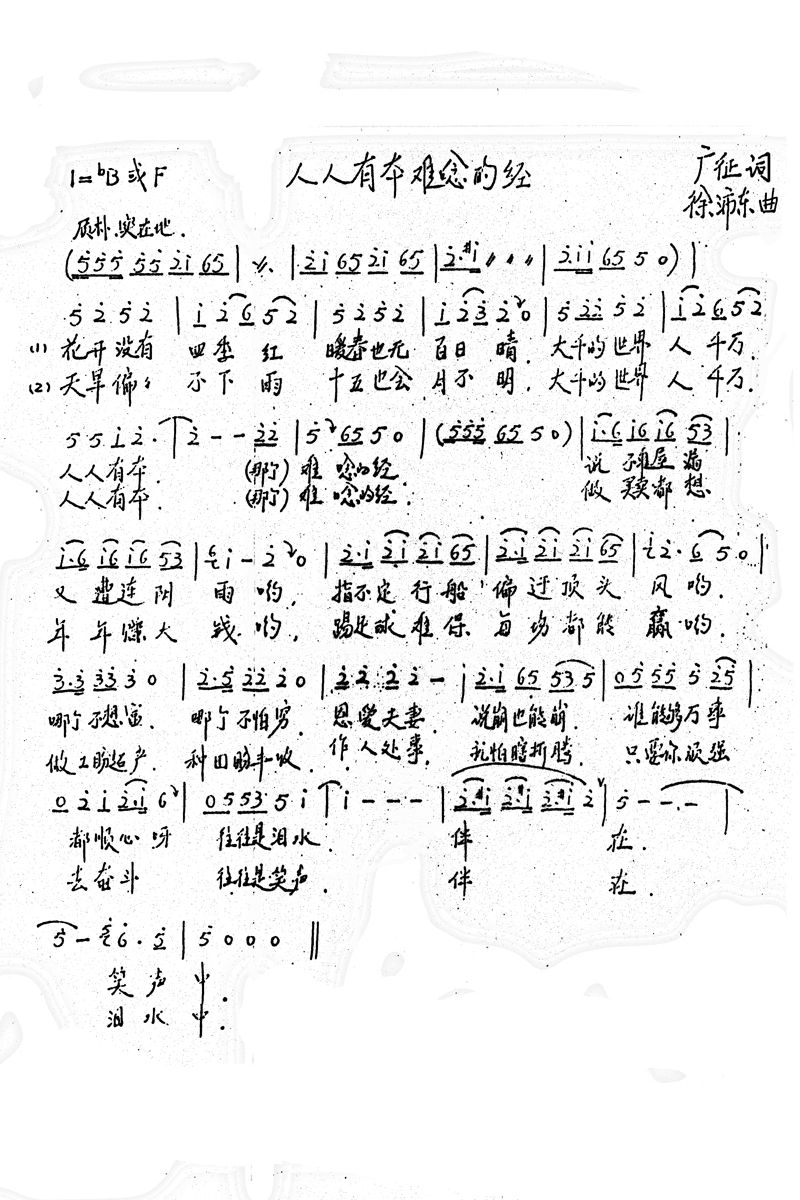 1=ᵇB或F 人人有本难唸的经 广征词
徐沛东曲
质朴.实在地.
(555 55 21 65 | 〃 | 21 65 21 65 | 2·#1 〃 〃 〃 | 2·11 65 5 0) |
5 2 5 2 | 1 2 6 5 2 | 5 2 5 2 | 1 2 3 2 0 | 5 22 5 2 | 1 2 6 5 2
(1) 花开没有 四季红 暖春也无 百日晴. 大千的世界 人千万.
(2) 天旱偏偏 不下雨 十五也会 月不明. 大千的世界 人千万.
5 5 1 2· | 2 - - 22 | 5 65 5 0 | (555 65 5 0) | 1·6 16 16 53 |
人人有本. (那个) 难唸的经. 说不准屋漏
人人有本. (那个) 难唸的经. 做买卖都想
1·6 16 16 53 | 61 - 2 0 | 2·1 21 21 65 | 2·1 21 21 65 | 12· 6 5 0 |
又遭连阴雨哟, 指不定行船偏迂顶头风哟.
年年赚大钱哟, 踢足球难保每场都能赢哟.
3·3 33 3 0 | 2·5 22 2 0 | 2·2 2 2 - | 2·1 65 53 5 | 05 55 5 25 |
哪个不想富. 哪个不怕穷. 恩爱夫妻. 说崩也能崩. 谁能够万事
做工盼超产. 种田盼丰收. 作人处事. 就怕瞎折腾. 只要你顽强
0 2 1 2·1 6 | 0 5 53 5 1 | 1 - - - | 2·#1 2·#1 2·#1 2 | 5 - - - |
都顺心呀 往往是泪水. 伴 在.
去奋斗 往往是笑声. 伴 在.
5 - 6· 5 | 5 0 0 0 ‖
笑声中.
泪水中.